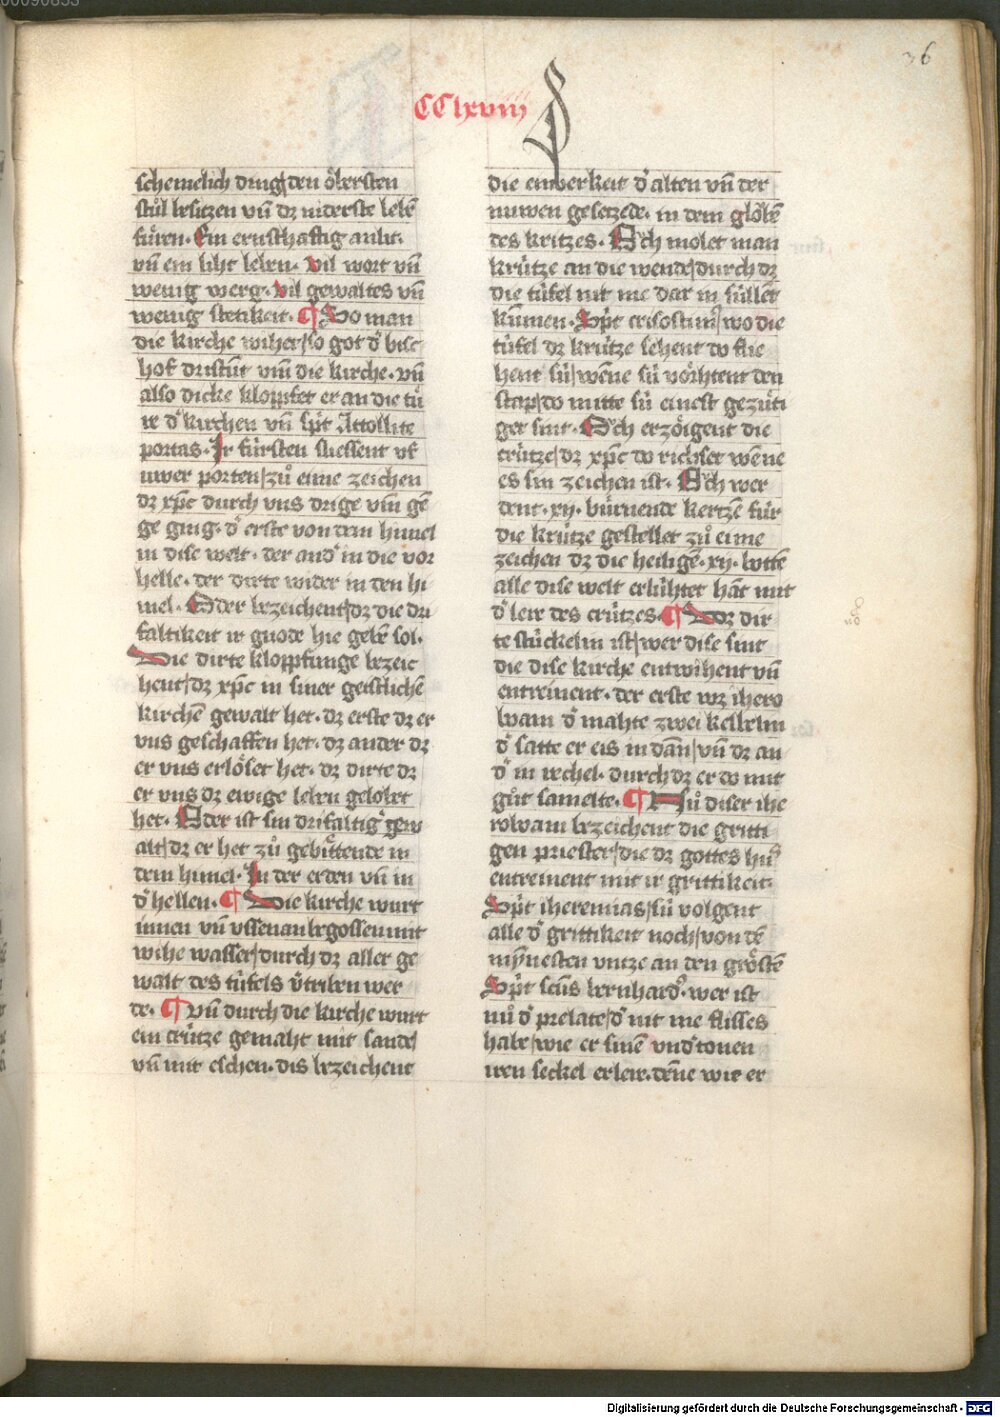 36
CClxviij
schemelich ding den öbersten
stůl besitzen vn̄ dz niderste lebē
fu̍ren. Ein ernsthafftig anlit.
vn̄ ein liht leben. vil wort vn̄
wenig werg. vil gewaltes vn̄
wenig stetikeit. ¶ So man
die kirche wihet / so got dˀ bisc
hof dristūt vm̄ die kirche. vn̄
also dicke klopffet er an die tu̍
re dˀ kirchen vn̄ sp̄t Attollite
portas. Ir fu̍rsten sliessent vf
uwer porten / zů eime zeichen
dz xp̄c durch vns drige vm̄ gē
ge ging. dˀ erste von dem himel
in dise welt. der andˀ in die vor
helle. der dirte wider in den hi
mel. Oder bezeichent / dz die dri
faltikeit ir gnode hie gebē sol.
Die dirte klopffunge bezeic
hent / dz xp̄c in siner geistlichē
kirchē gewalt het. dz erste dz er
vns geschaffen het. dz ander dz
er vns erlöset het. dz dirte dz
er vns dz ewige leben gelobet
het. Oder ist sin drifaltigˀ gew
alt / dz er het zů gebu̍ttende in
dem himel. In der erden vn̄ in
dˀ hellen. ¶ Die kirche wurt
innen vn̄ vssenan begossen mit
wihe wasser / durch dz aller ge
walt des tu̍fels v̄triben wer
de. ¶ vn̄ durch die kirche wurt
ein cru̍tze gemaht mit sande /
vn̄ mit eschen. dis bezeichent
die einberkeit dˀ alten vn̄ der
nuwen gesetzede. in dem glöbē
des kritzes. Och molet man
kru̍tze an die wende / durch dz
die tu̍fel nit me dar in su̍llēt
ku̍mmen. Sp̄t crisostimˀ / wo die
tu̍fel dz kru̍tze sehent do flie
hent su̍ / wēne su̍ vörhtent den
stap / do mitte su̍ einest gezu̍ti
get sint. Och erzöigent die
cru̍tze / dz xp̄c do richset wēne
es sin zeichen ist. Och wer
dent. xij. bu̍rnende kertzē fu̍r
die kru̍tze gestellet zů eime
zeichen dz die heiligē. xij. botte
alle dise welt erlu̍htet hāt mit
dˀ lere des cru̍tzes. ¶ Daz dir
te stu̍ckelin ist / wer dise sint
die dise kirche entwihent vn̄
entreinent. der erste wz ihero
boam dˀ mahte zwei kelbelin
dˀ satte er eis in dan / vn̄ dz an
dˀ in bechel. durch dz er do mit
gůt samelte. ¶ Nů diser ihe
roboam bezeichent die gritti
gen priester / die dz gottes hus
entreinent mit ir grittikeit.
Sp̄t iheremias / su̍ volgent
alle dˀ grittikeit noch / von dē
mynnesten vntze an den gröstē
Sp̄t scūs bernhardˀ. wer ist
nů dˀ prelate / dˀ nit me flisses
habe / wie er sinē vndˀtonen
iren seckel erlere. dēne wie er
Digitalisierung gefördert durch die Deutsche Forschungsgemeinschaft - DFG